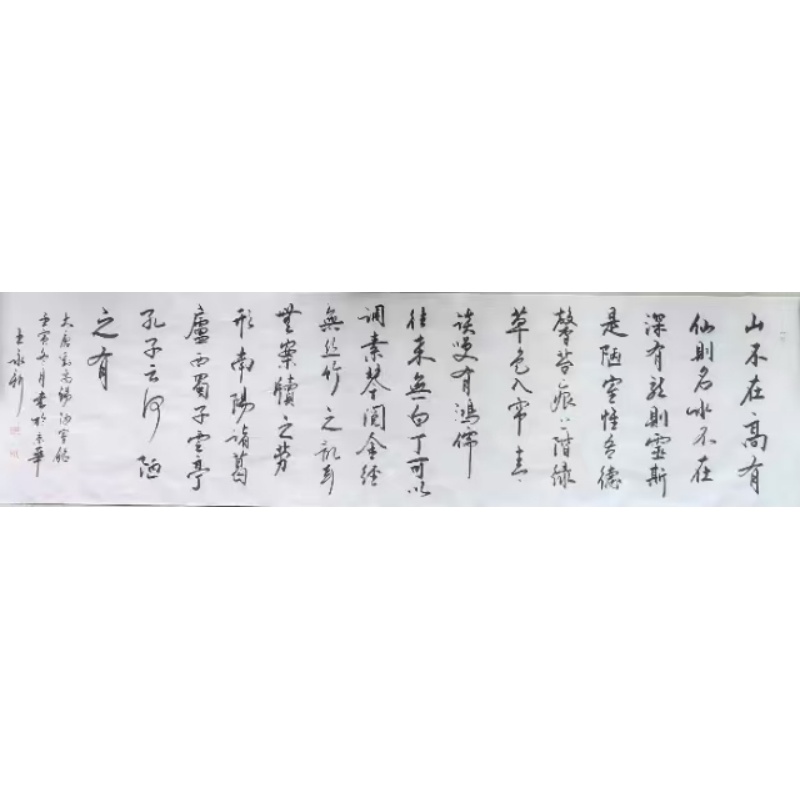 山不在高有
仙則名水不在
深有龍則靈斯
是陋室惟吾德
馨苔痕上階綠
草色入帘青
談笑有鴻儒
往来無白丁可以
調素琴閱金經
無丝竹之亂耳
無案牘之勞
形南陽諸葛
廬西蜀子雲亭
孔子云何陋
之有
大唐劉禹錫陋室銘
壬寅冬月書於京華
王永新